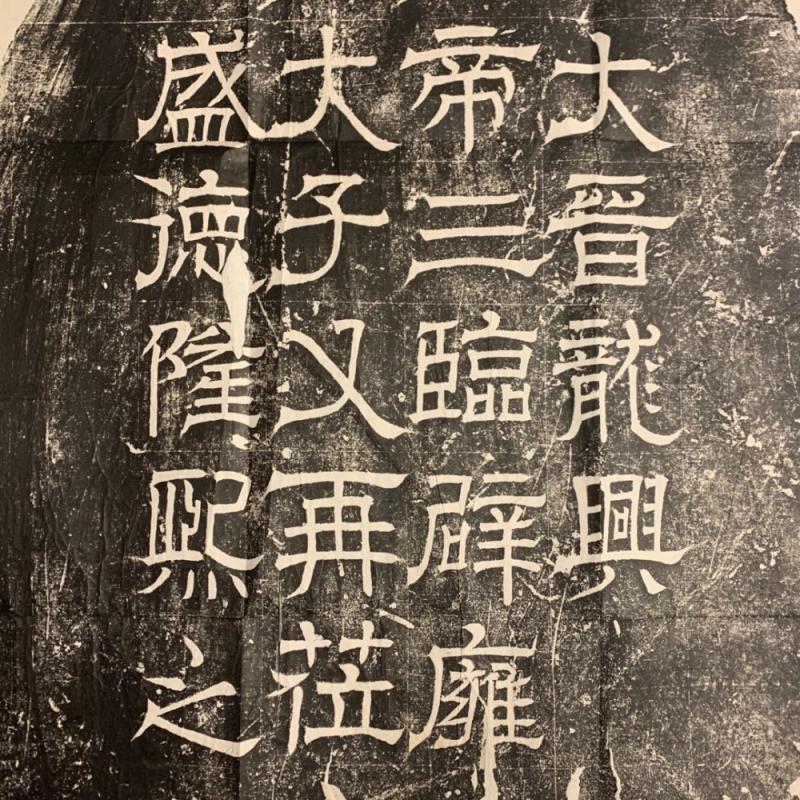 大晉龍興
帝三臨辟廱
大子又再莅
盛德隆熙之